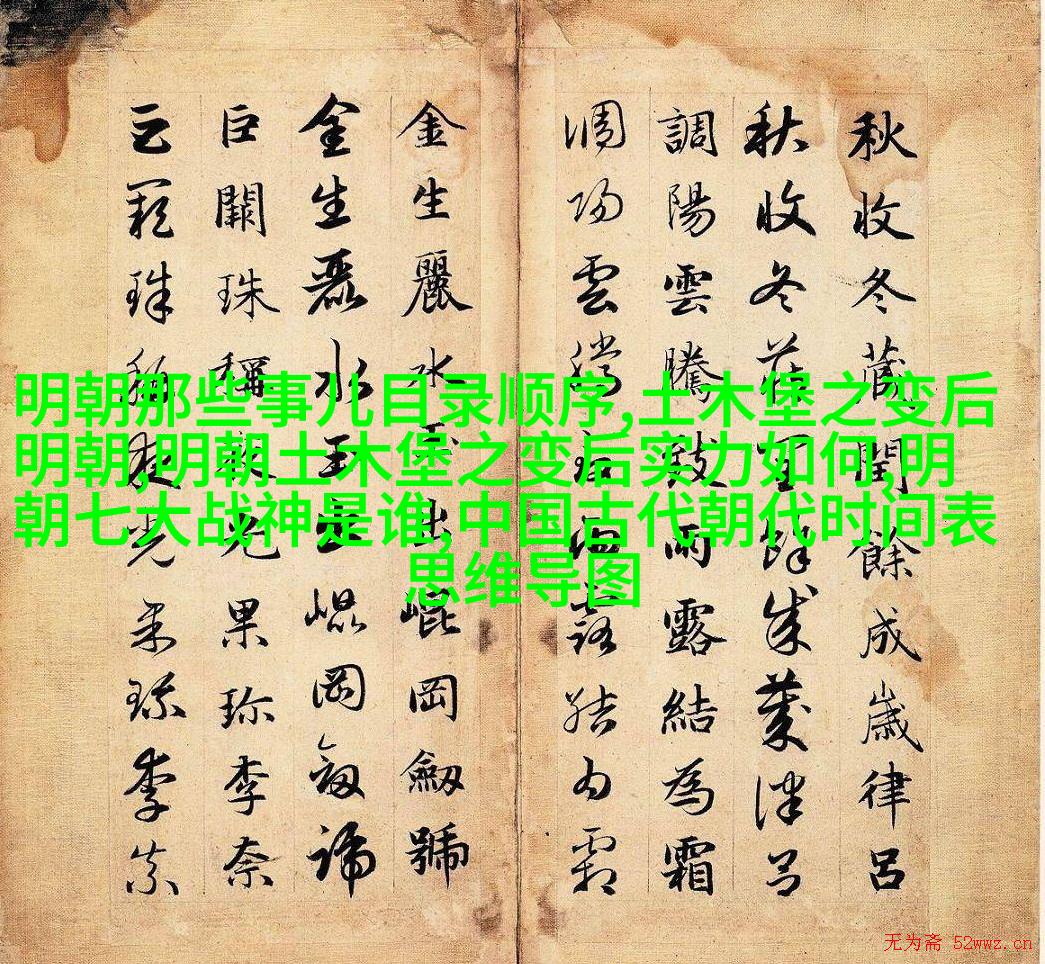 明朝那些事儿目录顺序,土木堡之变后
明朝,明朝土木堡之变后实力如何,明
朝七大战神是谁,中国古代朝代时间表
思维导图
秋收冬藏閏餘成歲律呂
秋收冬藏閏餘成歲律呂
調陽雲騰致雨露結為霜
調陽雲騰致雨露結為霜
金生麗水玉出崐岡劔號
金生麗水玉出崐岡劔號
巨闕珠稱夜光果珍李奈
巨闕珠稱夜光果珍李奈
无为斋 52wwz.cn